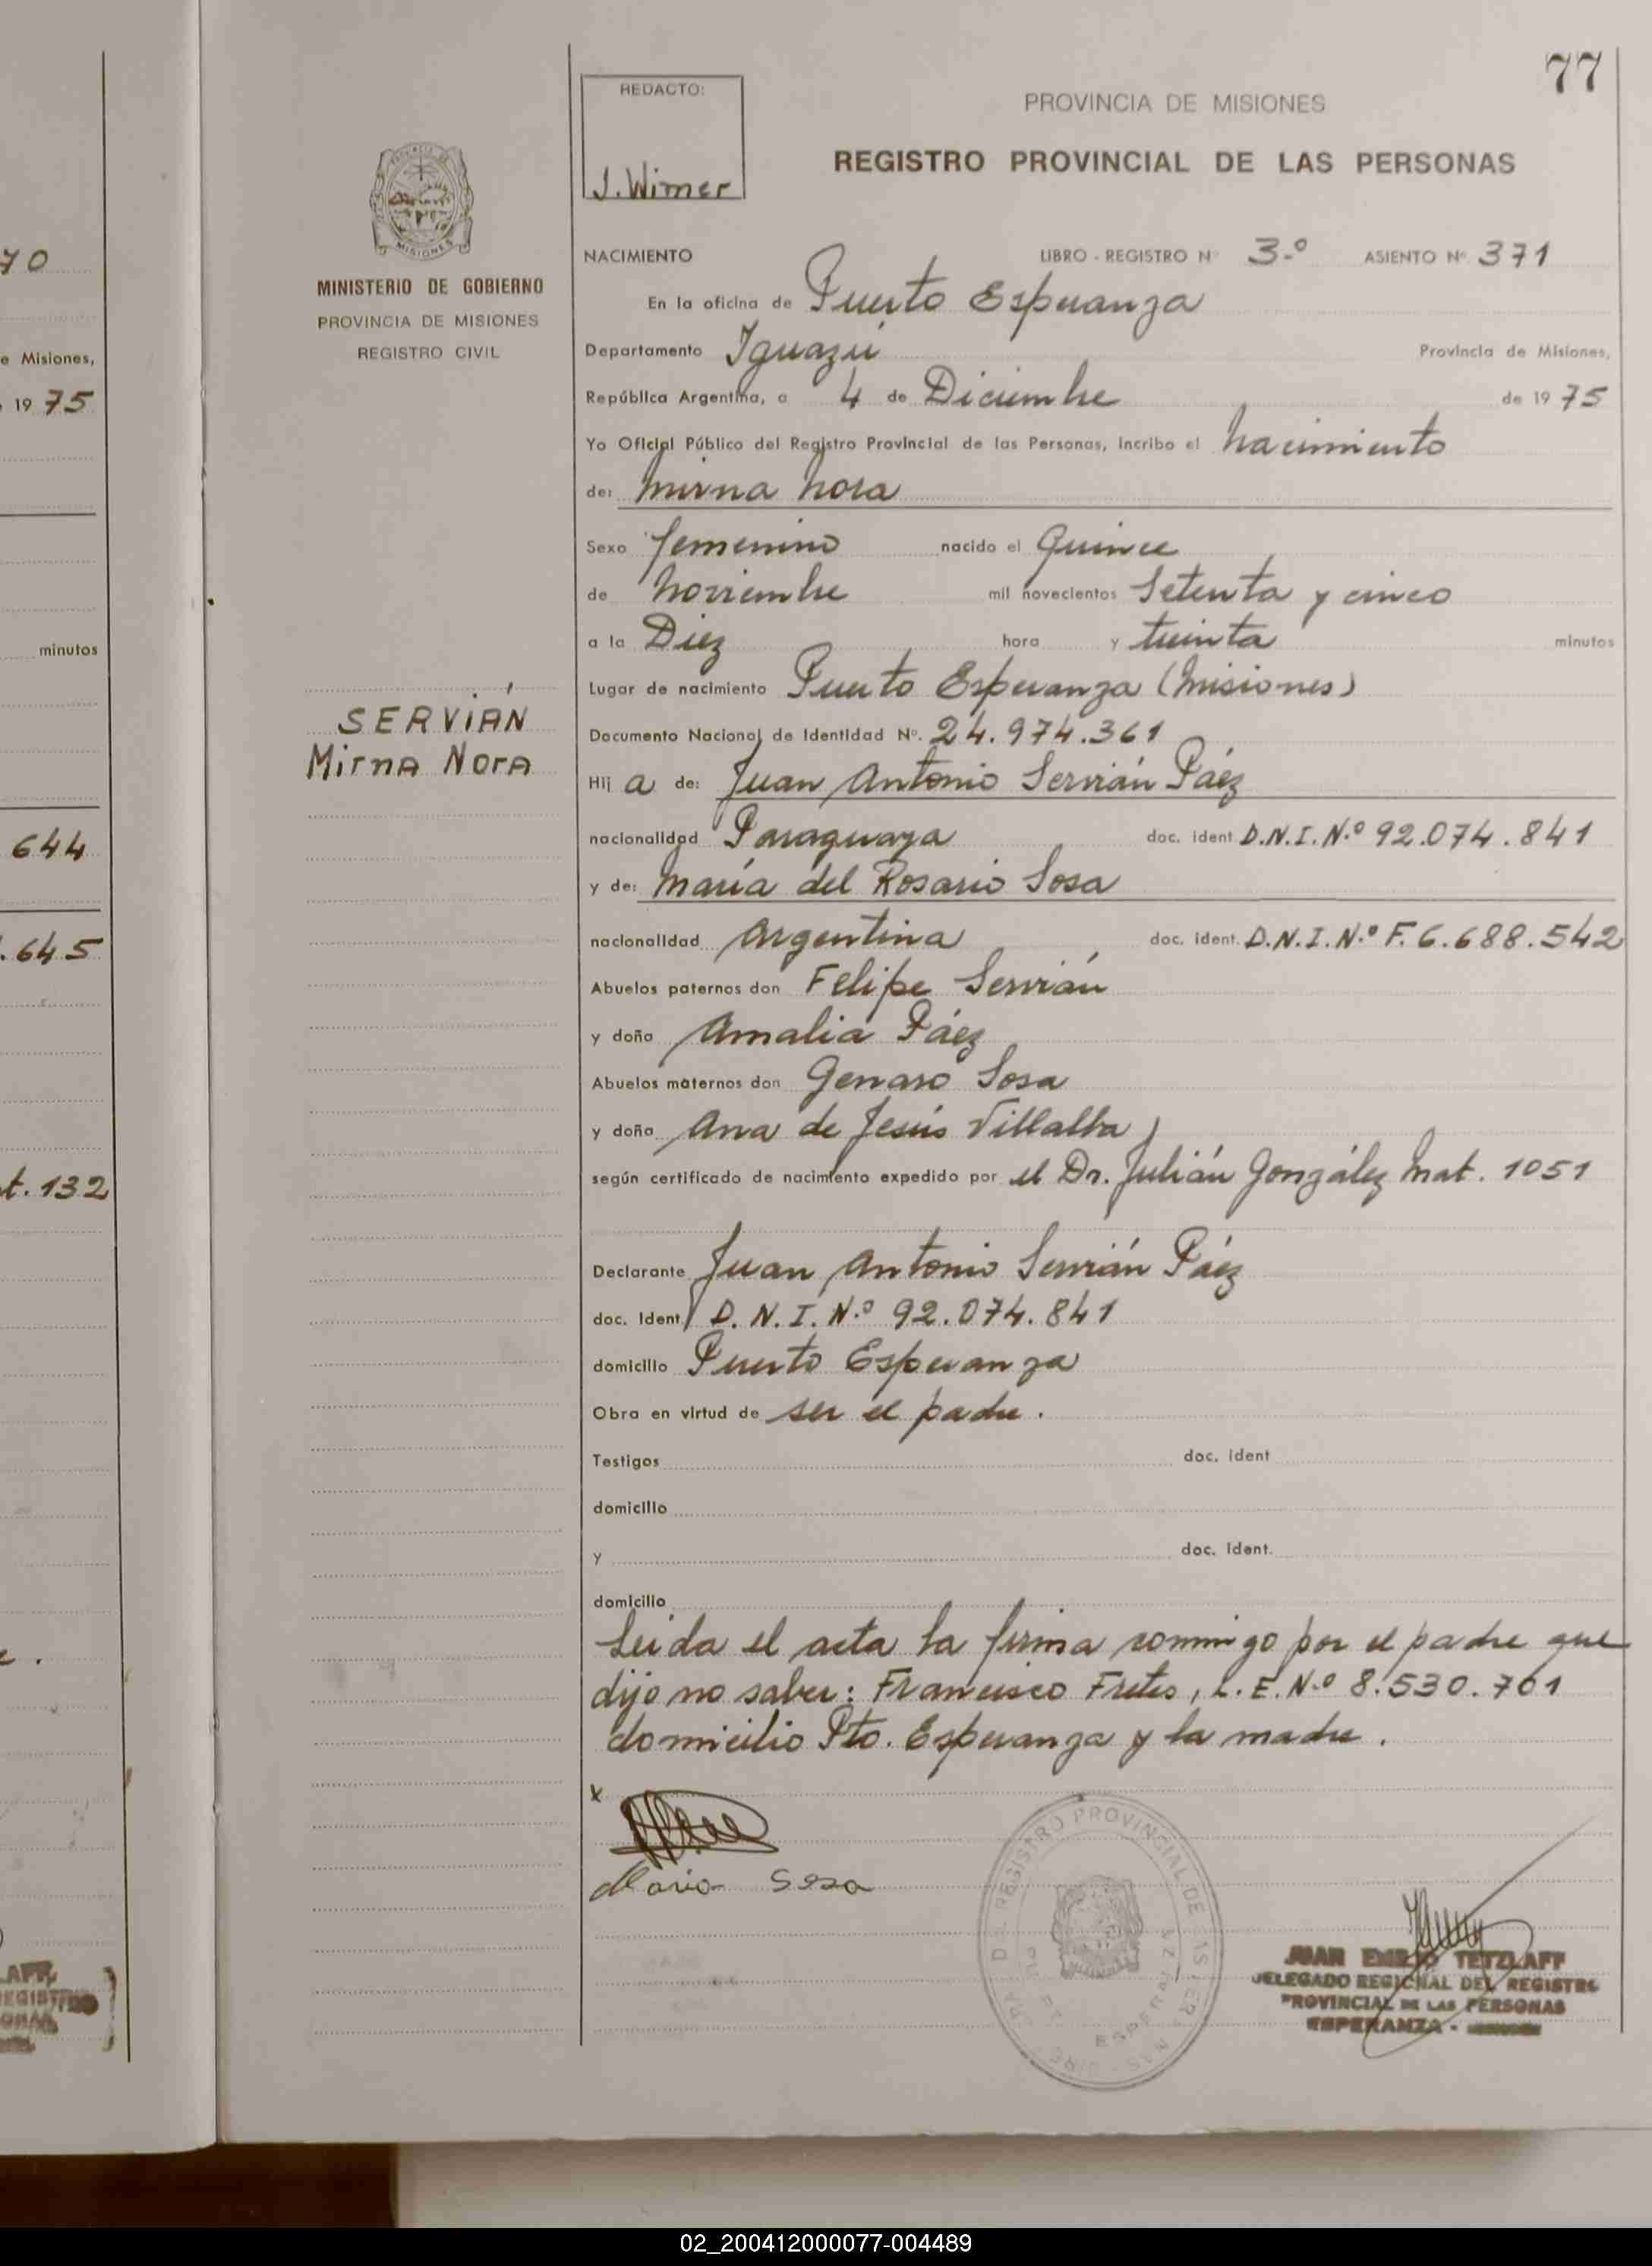 77
REDACTO:
J. Wimer
PROVINCIA DE MISIONES
REGISTRO PROVINCIAL DE LAS PERSONAS
MISIONES
MINISTERIO DE GOBIERNO
PROVINCIA DE MISIONES
REGISTRO CIVIL
SERVIÁN
Mirna Nora
NACIMIENTO LIBRO - REGISTRO Nº 3.º ASIENTO Nº 371
En la oficina de Puerto Esperanza
Departamento Iguazú Provincia de Misiones,
República Argentina, a 4 de Diciembre de 1975
Yo Oficial Público del Registro Provincial de las Personas, incribo el nacimiento
de: Mirna Nora
Sexo femenino nacido el Quince
de Noviembre mil novecientos Setenta y cinco
a la Diez hora y treinta minutos
Lugar de nacimiento Puerto Esperanza (Misiones)
Documento Nacional de Identidad Nº. 24.974.361
Hij a de: Juan Antonio Servián Páez
nacionalidad Paraguaya doc. ident. D.N.I.N.º 92.074.841
y de: María del Rosario Sosa
nacionalidad Argentina doc. ident. D.N.I.N.º F.6.688.542
Abuelos paternos don Felipe Servián
y doña Amalia Páez
Abuelos maternos don Genaro Sosa
y doña Ana de Jesús Villalba
según certificado de nacimiento expedido por el Dr. Julián González Mat. 1051
Declarante Juan Antonio Servián Páez
doc. Ident. D.N.I.N.º 92.074.841
domicilio Puerto Esperanza
Obra en virtud de ser el padre.
Testigos doc. ident
domicilio
y doc. ident.
domicilio
Leída el acta la firma conmigo por el padre que
dijo no saber: Francisco Fretes, L.E.N.º 8.530.761
domicilio Pto. Esperanza y la madre.
x
Maria Sosa
REGISTRO PROVINCIAL DE
JUAN EMILIO TETZLAFF
DELEGADO REGIONAL DEL REGISTRO
PROVINCIAL DE LAS PERSONAS
ESPERANZA -
70
e Misiones,
19 75
minutos
644
.645
t. 132
02_200412000077-004489